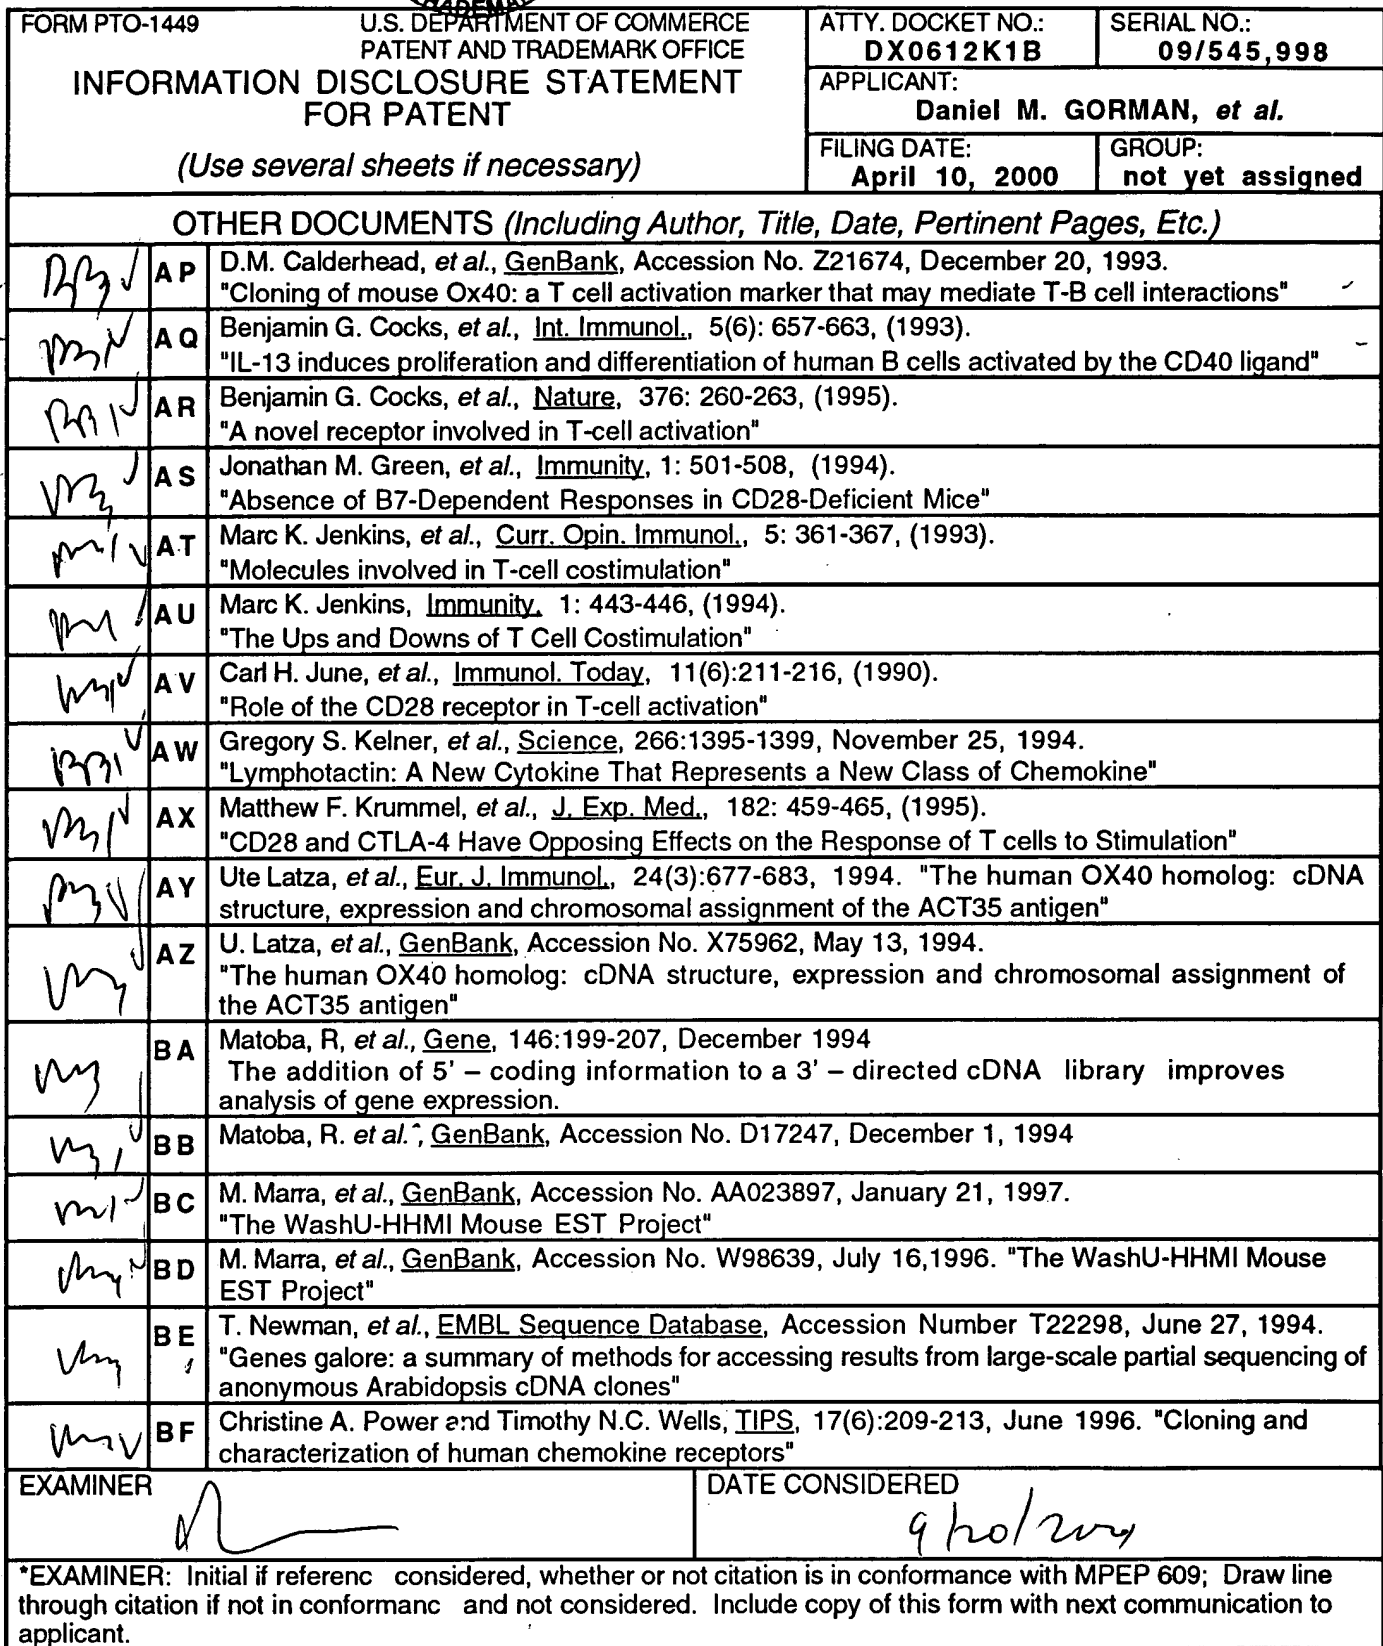 TRADEMA
FORM PTO-1449
U.S. DEPARTMENT OF COMMERCE
PATENT AND TRADEMARK OFFICE
INFORMATION DISCLOSURE STATEMENT
FOR PATENT
(Use several sheets if necessary)
ATTY. DOCKET NO.:
DX0612K1B
SERIAL NO.:
09/545,998
APPLICANT:
Daniel M. GORMAN, et al.
FILING DATE:
April 10, 2000
GROUP:
not yet assigned
OTHER DOCUMENTS (Including Author, Title, Date, Pertinent Pages, Etc.)
AP D.M. Calderhead, et al., GenBank, Accession No. Z21674, December 20, 1993.
"Cloning of mouse Ox40: a T cell activation marker that may mediate T-B cell interactions"
AQ Benjamin G. Cocks, et al., Int. Immunol., 5(6): 657-663, (1993).
"IL-13 induces proliferation and differentiation of human B cells activated by the CD40 ligand"
AR Benjamin G. Cocks, et al., Nature, 376: 260-263, (1995).
"A novel receptor involved in T-cell activation"
AS Jonathan M. Green, et al., Immunity, 1: 501-508, (1994).
"Absence of B7-Dependent Responses in CD28-Deficient Mice"
AT Marc K. Jenkins, et al., Curr. Opin. Immunol., 5: 361-367, (1993).
"Molecules involved in T-cell costimulation"
AU Marc K. Jenkins, Immunity, 1: 443-446, (1994).
"The Ups and Downs of T Cell Costimulation"
AV Carl H. June, et al., Immunol. Today, 11(6):211-216, (1990).
"Role of the CD28 receptor in T-cell activation"
AW Gregory S. Kelner, et al., Science, 266:1395-1399, November 25, 1994.
"Lymphotactin: A New Cytokine That Represents a New Class of Chemokine"
AX Matthew F. Krummel, et al., J. Exp. Med., 182: 459-465, (1995).
"CD28 and CTLA-4 Have Opposing Effects on the Response of T cells to Stimulation"
AY Ute Latza, et al., Eur. J. Immunol., 24(3):677-683, 1994. "The human OX40 homolog: cDNA
structure, expression and chromosomal assignment of the ACT35 antigen"
AZ U. Latza, et al., GenBank, Accession No. X75962, May 13, 1994.
"The human OX40 homolog: cDNA structure, expression and chromosomal assignment of
the ACT35 antigen"
BA Matoba, R, et al., Gene, 146:199-207, December 1994
The addition of 5' – coding information to a 3' – directed cDNA library improves
analysis of gene expression.
BB Matoba, R. et al., GenBank, Accession No. D17247, December 1, 1994
BC M. Marra, et al., GenBank, Accession No. AA023897, January 21, 1997.
"The WashU-HHMI Mouse EST Project"
BD M. Marra, et al., GenBank, Accession No. W98639, July 16,1996. "The WashU-HHMI Mouse
EST Project"
BE T. Newman, et al., EMBL Sequence Database, Accession Number T22298, June 27, 1994.
"Genes galore: a summary of methods for accessing results from large-scale partial sequencing of
anonymous Arabidopsis cDNA clones"
BF Christine A. Power and Timothy N.C. Wells, TIPS, 17(6):209-213, June 1996. "Cloning and
characterization of human chemokine receptors"
EXAMINER
DATE CONSIDERED
*EXAMINER: Initial if referenc considered, whether or not citation is in conformance with MPEP 609; Draw line
through citation if not in conformanc and not considered. Include copy of this form with next communication to
applicant.